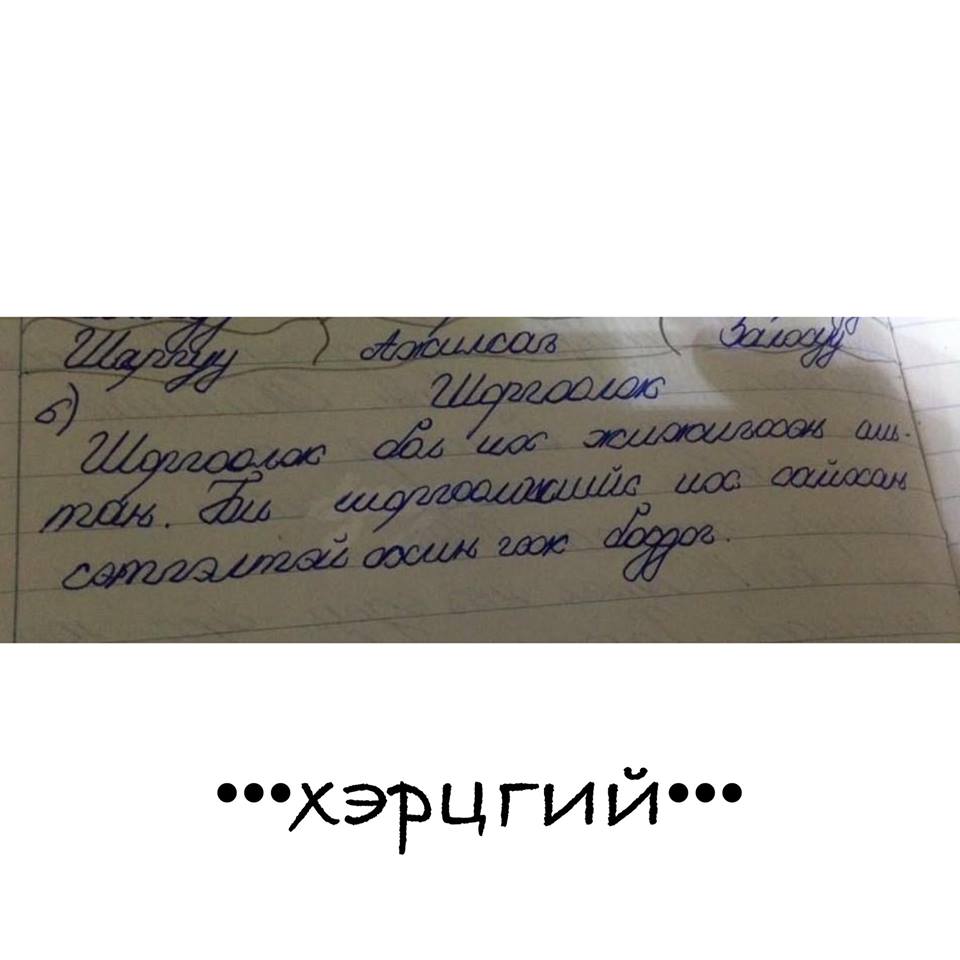 Шаргуу Ажилсаг Залхуу
б) Шоргоолж
Шоргоолж бол их жижигхэн амь-
тан. Би шоргоолжийг их сайхан
сэтгэлтэй эсэх гэж боддог.
•••хэрцгий•••